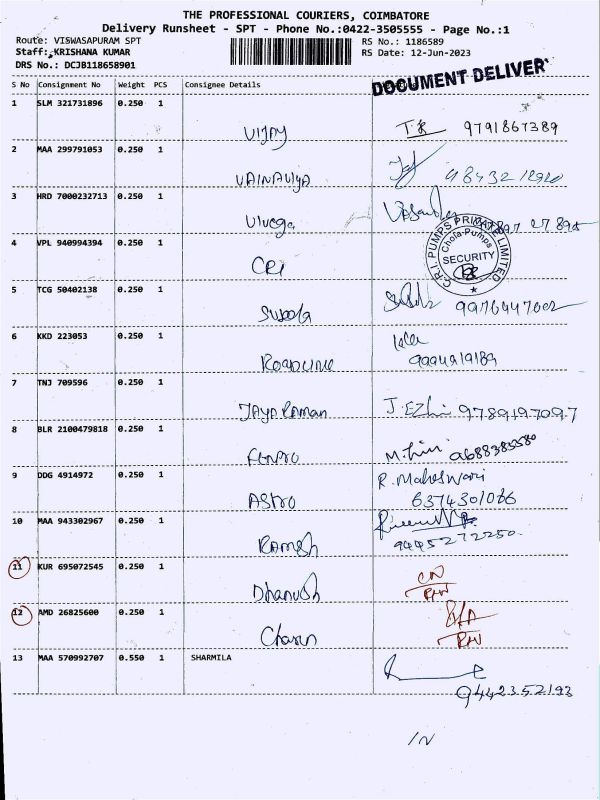 THE PROFESSIONAL COURIERS, COIMBATORE
Delivery Runsheet - SPT - Phone No.:0422-3505555 - Page No.:1
Route: VISWASAPURAM SPT
RS No.: 1186589
Staff: KRISHANA KUMAR
RS Date: 12-Jun-2023
DRS No.: DCJB118658901
DOCUMENT DELIVER
S No Consignment No Weight PCS Consignee Details
1 SLM 321731896 0.250 1
VIJAY 9791867389
2 MAA 299791053 0.250 1
3 HRD 7000232713 0.250 1
Vivega
4 VPL 940994394 0.250 1
CRI
C.R.I. PUMPS PRIVATE LIMITED
Chola-Pumps
SECURITY
5 TCG 50402138 0.250 1
9976447002
6 KKD 223053 0.250 1
ROADLINE
7 TNJ 709596 0.250 1
JAYARAMAN J.Ezhi 9789197097
8 BLR 2100479818 0.250 1
9688385580
9 DDG 4914972 0.250 1
ASTRO R. Maheswari
6374301066
10 MAA 943302967 0.250 1
RAMESH 9445272250
11 KUR 695072545 0.250 1
Dhanush
12 AMD 26825600 0.250 1
Charan
13 MAA 570992707 0.550 1 SHARMILA
9442352193
IN